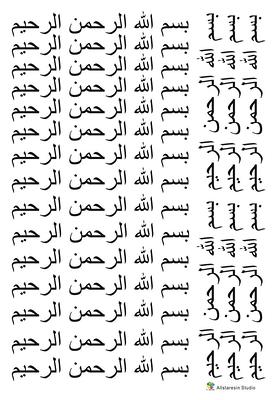 بسم الله الرحمن الرحيم
بسم الله الرحمن الرحيم
بسم الله الرحمن الرحيم
بسم الله الرحمن الرحيم
بسم الله الرحمن الرحيم
بسم الله الرحمن الرحيم
بسم الله الرحمن الرحيم
بسم الله الرحمن الرحيم
بسم الله الرحمن الرحيم
بسم الله الرحمن الرحيم
بسم الله الرحمن الرحيم
بسم الله الرحمن الرحيم
بسم الله الرحمن الرحيم
بسم الله الرحمن الرحيم
بسم الله الرحمن الرحيم
بسم الله الرحمن الرحيم
بسم الله الرحمن الرحيم
بسم الله الرحمن الرحيم
بسم الله الرحمن الرحيم
بسم الله الرحمن الرحيم
بسم الله الرحمن الرحيم
Allstaresin Studio